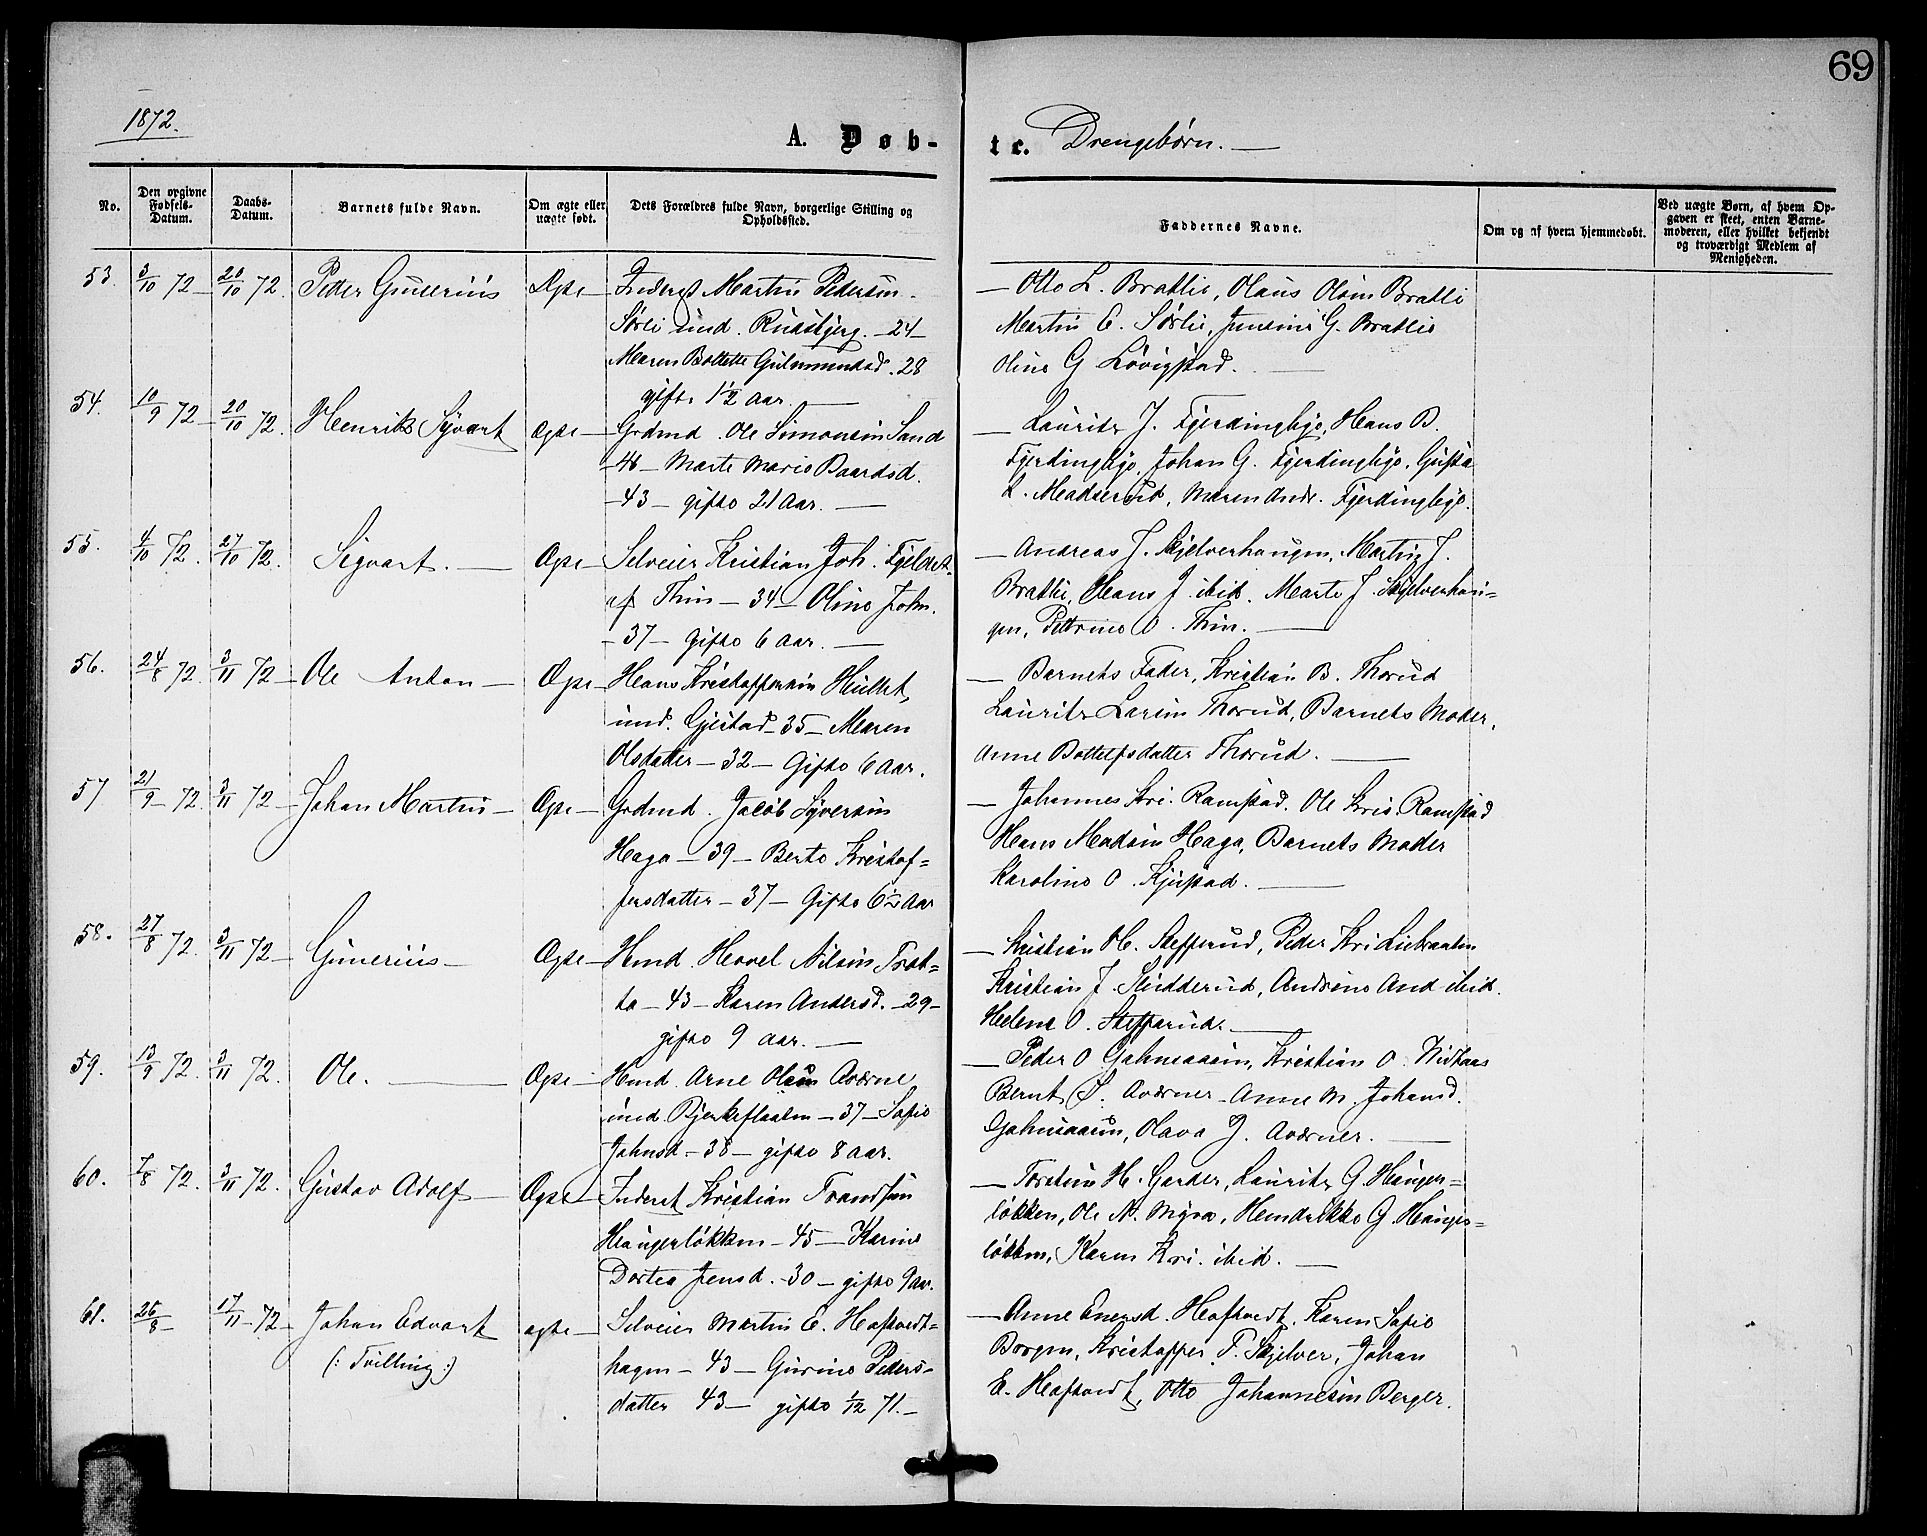 69
1872.
A. Døb-
te. Drengebørn.
No.
Den opgivne Fødsels-Datum.
Daabs-Datum.
Barnets fulde Navn.
Om ægte eller uægte født.
Dets Forældres fulde Navn, borgerlige Stilling og Opholdssted.
Faddernes Navne.
Om og af hvem hjemmedøbt.
Ved uægte Børn, af hvem Opgaven er skeet, enten Barnemoderen, eller hvilket bekjendt og troværdigt Medlem af Menigheden.
53. 3/10 72 20/10 72. Peder Gunerius Ægte Inderst Martin Pedersen
Sørli und. Rudsbjerg. 24
Maren Bottette 28
gifte 1½ Aar.
Otto L. Bratlie, Olaus Olsen Bratli
Martin E. Sørlie, G. Bratlie
Oline G Løvigstad.
54. 10/9 72 20/10 72. Henrik Syvart ægte Grdmd. Ole Simonsen Sand
46 Marte Marie Baardsd.
43 gifte 21 Aar.
Lauritz J. Fjerdingbye, Hans B.
Fjerdingbye, Johan G. Fjerdingbye, Gusta
L. Madserud, Maren Andr. Fjerdingbye.
55. 4/10 72. 27/10 72. Sigvart. Ægte Selveier Kristian Joh.
af Thin 34 Oline Joh.
37 gifte 6 Aar.
Andreas J. Skjelverhaugen, Martin J.
Bratlie, Hans J. ibid. Marte J. Skjelverhau=
gen, Pettrine O. Thin.
56. 24/8 72. 3/11 72 Ole Anton Ægte Hans Kristoffersen Hullet,
und. Gjestad 35 Maren
Olsdatter 32 Gifte 6 Aar.
Barnets Fader, Kristian B. Thorud
Lauritz Larsen Thorud, Barnets Moder,
Anne Bottelfsdatter Thorud.
57 21/9 72. 3/11 72 Johan Martin Ægte Grdmd. Jacob Syversen
Haga 39 Berte Kristof=
fersdatter 37 Gifte 6½ Aar
Johannes Kri. Ramstad. Ole Kris. Ramstad
Hans Madsen Haga, Barnets Moder
Karoline O. Kjustad.
58. 27/8 72. 3/11 72 Gunerius Ægte Hmd. Hovel Nilsen Trøt=
ta 43 Karen Andersd. 29
gifte 9 Aar.
Kristian H. Stefferud, Peder Kri
Kristian J. Skidderud, Andrine And ibid.
Helene O. Stefferud.
59. 13/9 72. 3/11 72. Ole. Ægte Hmd. Arne Olsen Aværne
und Bjerkeflaaten 37 Sofie
Johnsd 38 gifte 8 Aar.
Peder O Gahnsaasen, Kristian O.
Bernt S. Aværner Anne M. Johansd.
Gahnsaasen, Olava J. Aværner.
60. 7/8 72. 3/11 72. Gustav Adolf Ægte Inderst Kristian Trandsen
Haugerløkken 45 Karine
Dortea Jensd. 30 gifte 9 Aar.
Torstein H. Garder, Lauritz G. Hauger=
løkken, Ole N. Myra, Hendrikke G. Hauger=
løkken, Karen Kri. ibid.
61. 26/8 17/11 72 Johan Edvart ægte Selveier Martin E. Haftvedt=
(: Tvilling :)
hagen 43 Gurine Peders=
datter 43 gifte 1/12 71.
Anne Enersd. Haftvedt. Karen Sofie
Borgen, Kristoffer P. Skjelver, Johan
E. Haftvedt, Otto Johannesen Berger.